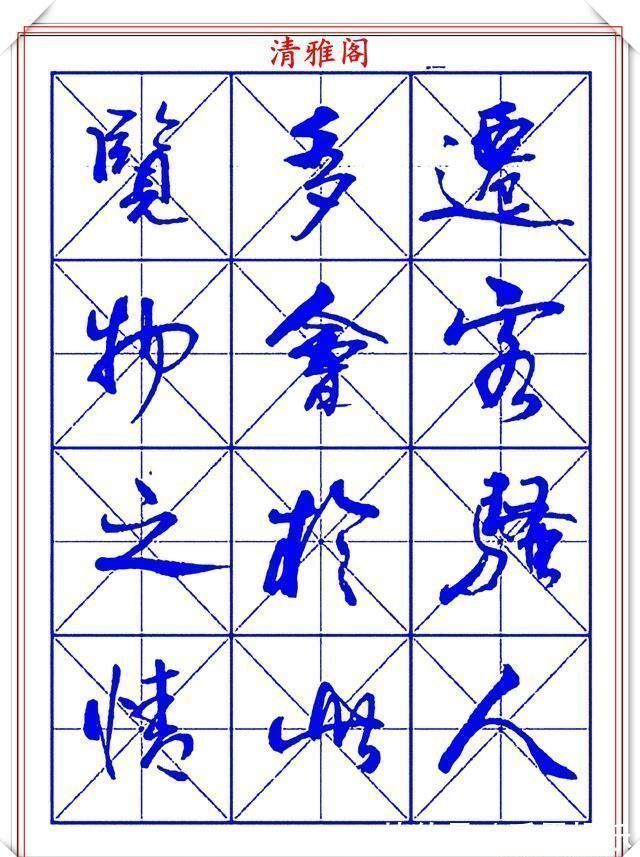 清雅阁
遷客騷人
多會於此
覽物之情